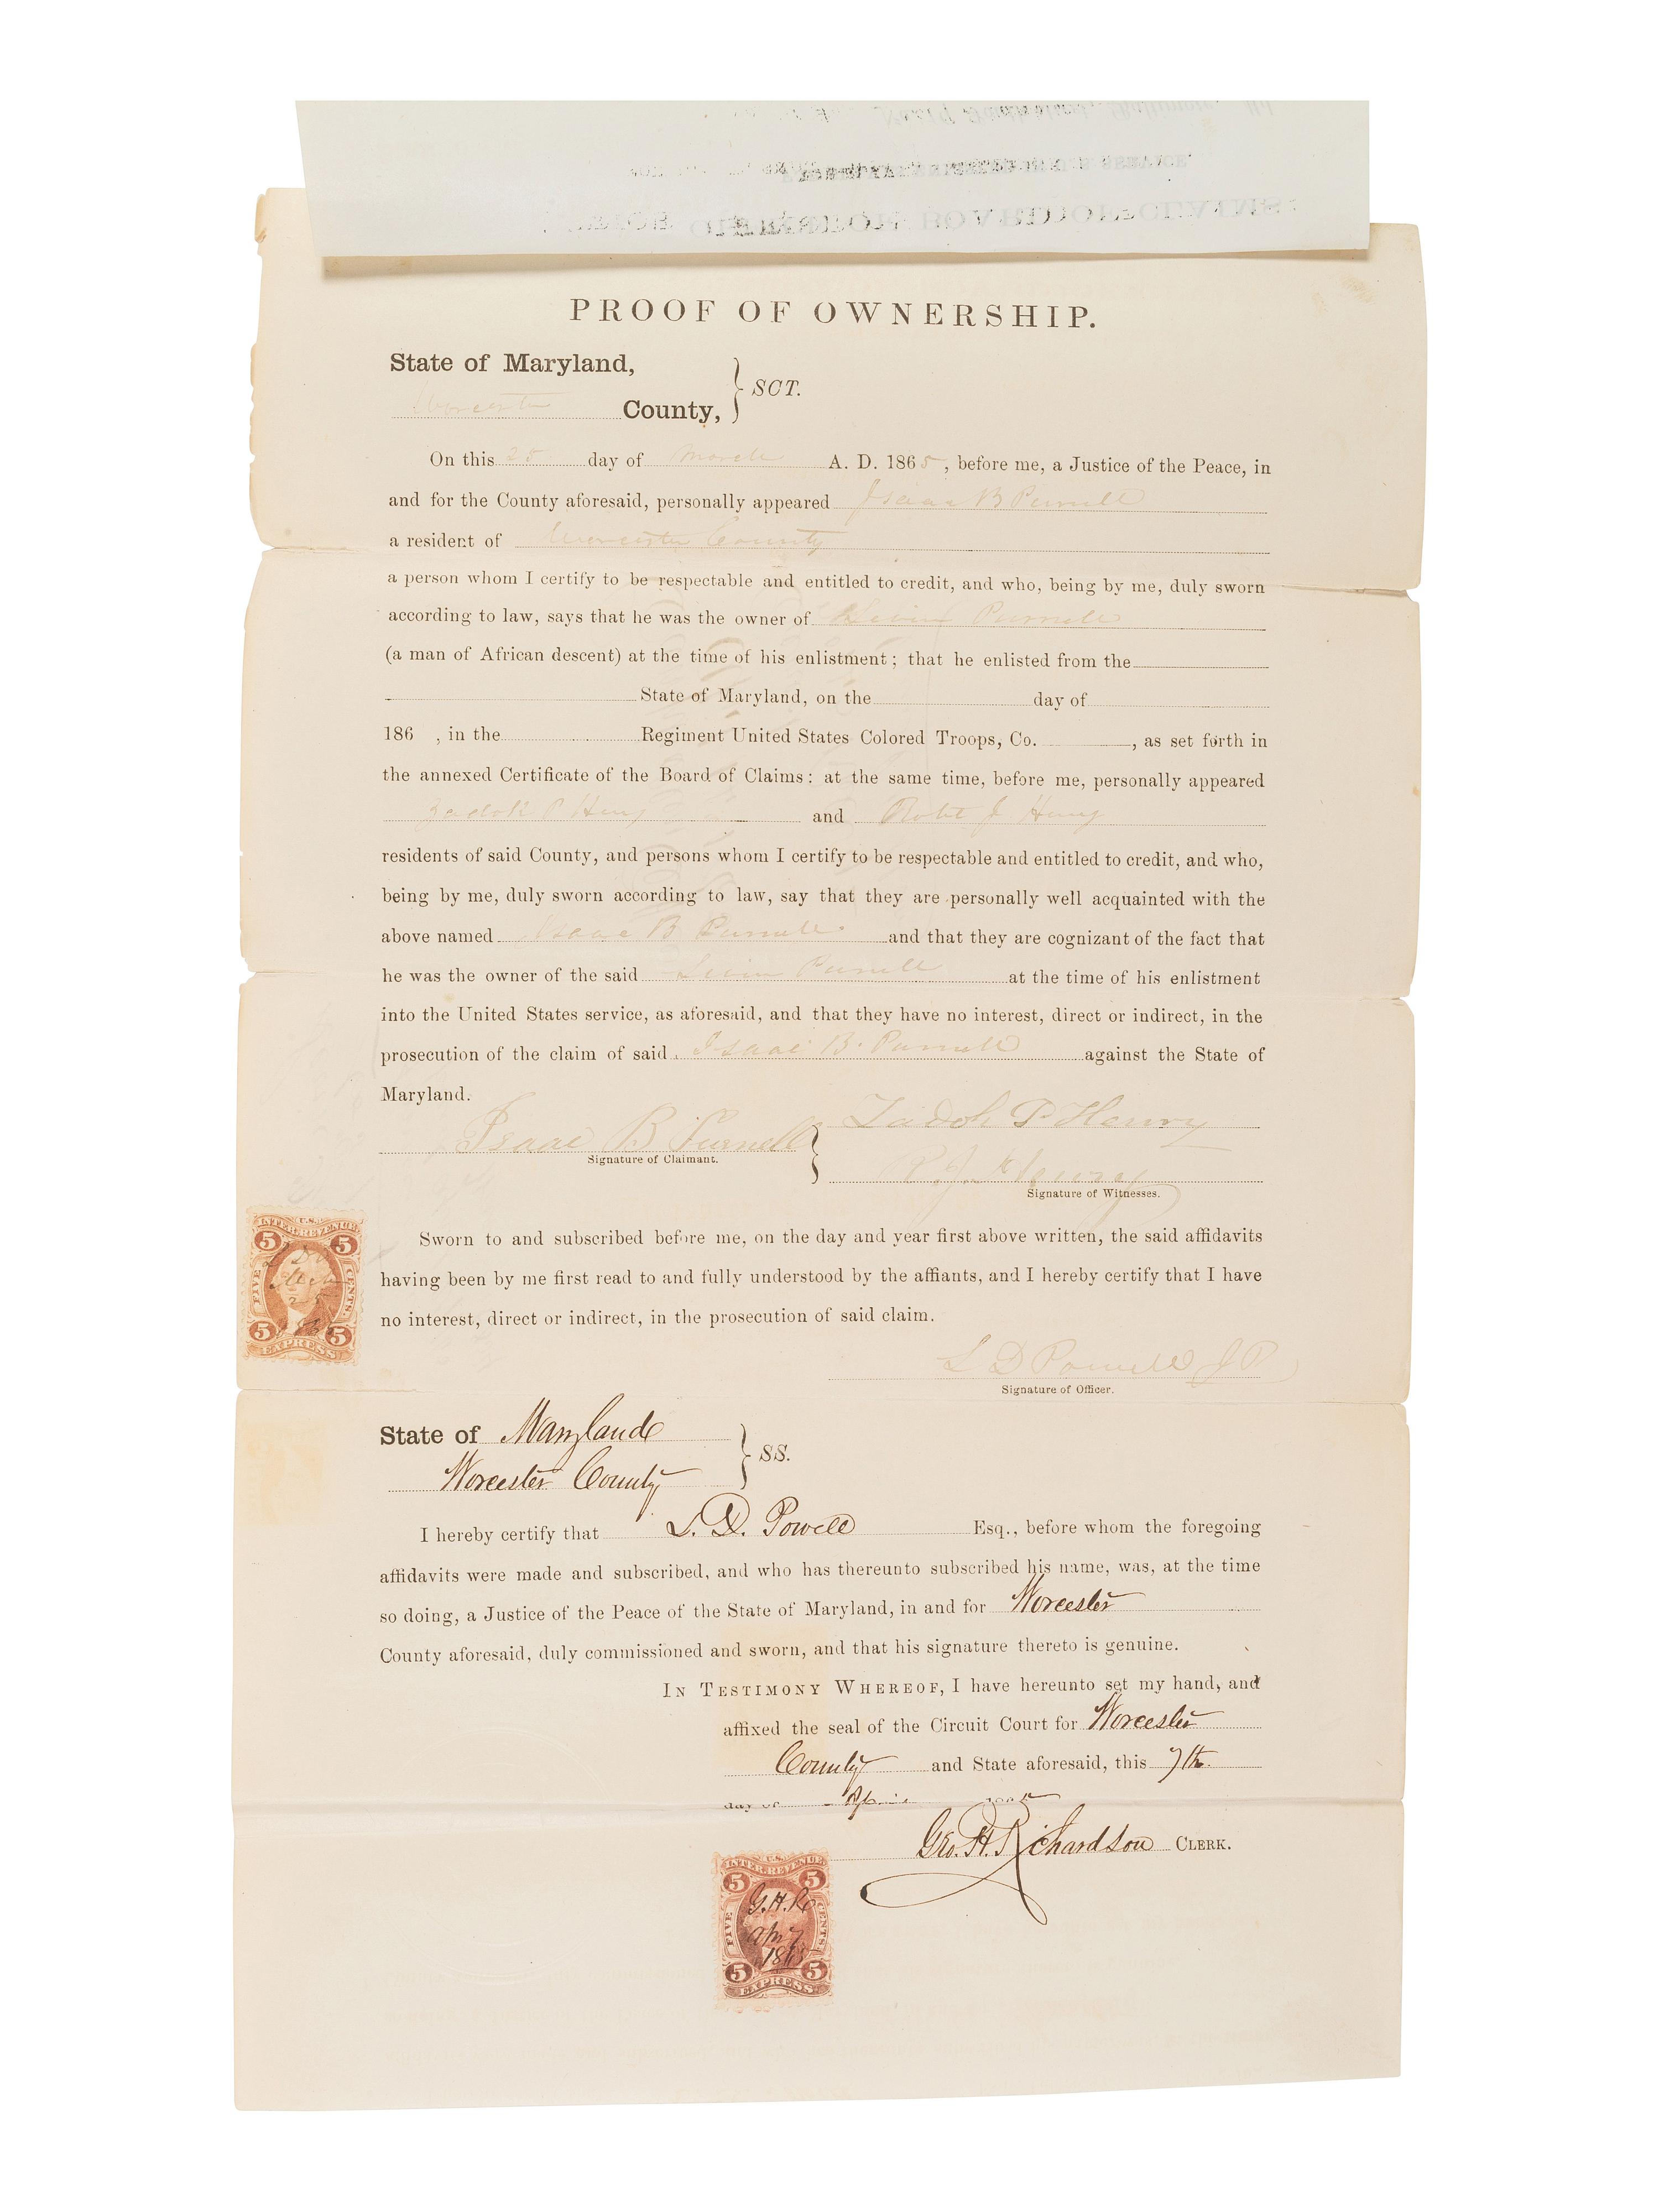 PROOF OF OWNERSHIP.
State of Maryland,
Worcester County, } SCT.
On this 25 day of March A. D. 1865, before me, a Justice of the Peace, in
and for the County aforesaid, personally appeared Isaac B Purnell
a resident of Worcester County
a person whom I certify to be respectable and entitled to credit, and who, being by me, duly sworn
according to law, says that he was the owner of Levin Purnell
(a man of African descent) at the time of his enlistment; that he enlisted from the
State of Maryland, on the day of
186 , in the Regiment United States Colored Troops, Co. , as set forth in
the annexed Certificate of the Board of Claims: at the same time, before me, personally appeared
Zadok P Henry and Robt J. Henry
residents of said County, and persons whom I certify to be respectable and entitled to credit, and who,
being by me, duly sworn according to law, say that they are personally well acquainted with the
above named Isaac B Purnell and that they are cognizant of the fact that
he was the owner of the said Levin Purnell at the time of his enlistment
into the United States service, as aforesaid, and that they have no interest, direct or indirect, in the
prosecution of the claim of said Isaac B. Purnell against the State of
Maryland.
Isaac B Purnell } Zadok P Henry
Signature of Claimant.
R J Henry
Signature of Witnesses.
Sworn to and subscribed before me, on the day and year first above written, the said affidavits
having been by me first read to and fully understood by the affiants, and I hereby certify that I have
no interest, direct or indirect, in the prosecution of said claim.
U.S.
INTER. REVENUE
5 5
FIVE CENTS.
5 5
EXPRESS
L D Powell J P
Signature of Officer.
State of Maryland
Worcester County } SS.
I hereby certify that L. D. Powell Esq., before whom the foregoing
affidavits were made and subscribed, and who has thereunto subscribed his name, was, at the time
so doing, a Justice of the Peace of the State of Maryland, in and for Worcester
County aforesaid, duly commissioned and sworn, and that his signature thereto is genuine.
IN TESTIMONY WHEREOF, I have hereunto set my hand, and
affixed the seal of the Circuit Court for Worcester
County and State aforesaid, this 7th
day of
Geo. H. Richardson CLERK.
U.S.
INTER. REVENUE
5 5
G.H.R
FIVE CENTS.
Apr 7
1865
5 5
EXPRESS